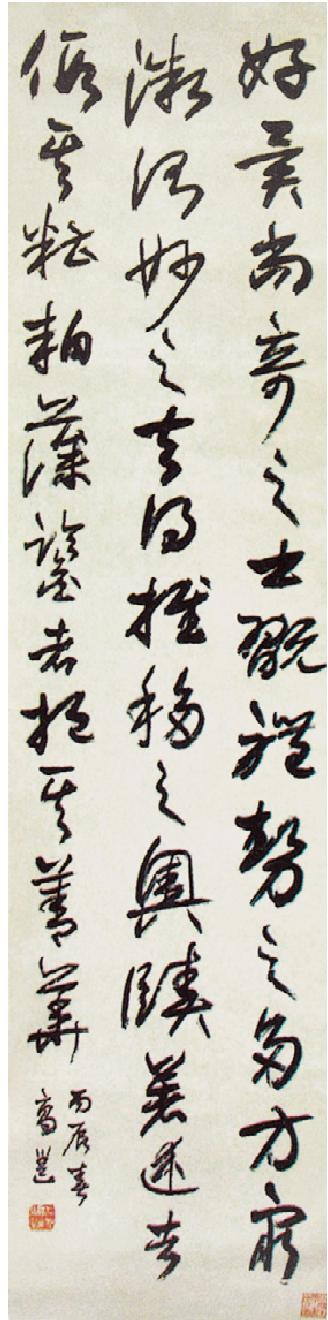 好異尚奇之士翫體勢之多方窮
微測妙之夫得推移之奧賾著述者
假其糟粕藻鑒者挹其菁華
丙辰春
高邕